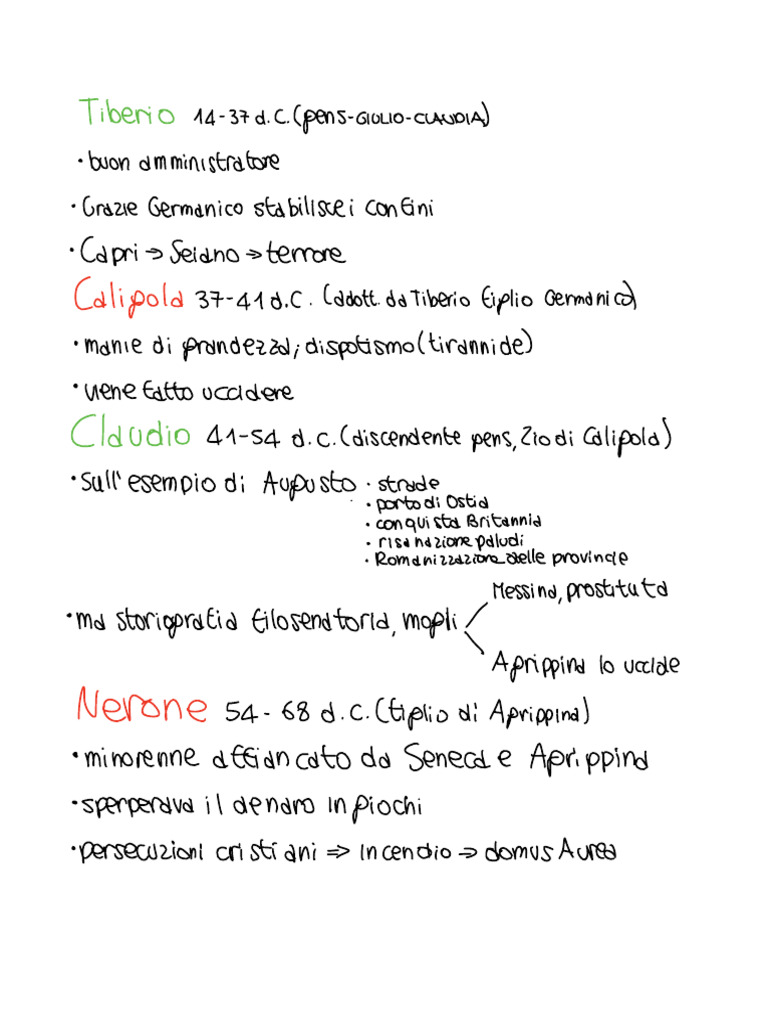 Tiberio 14-37 d.C. (gens-GIULIO-CLAUDIA)
• buon amministratore
• Grazie Germanico stabilisce i confini
• Capri → Seiano → terrore
Caligola 37-41 d.C. (adott. da Tiberio figlio Germanico)
• manie di grandezza; dispotismo (tirannide)
• viene fatto uccidere
Claudio 41-54 d.C. (discendente gens, zio di Caligola)
• Sull'esempio di Augusto • strade
• porto di Ostia
• conquista Britannia
• risanazione paludi
• Romanizzazione delle provincie
Messina, prostituta
• ma storiografia filosenatoria, mogli
Agrippina lo uccide
Nerone 54-68 d.C. (figlio di Agrippina)
• minorenne affiancato da Seneca e Agrippina
• sperperava il denaro in giochi
• persecuzioni cristiani ⇒ incendio → domus Aurea